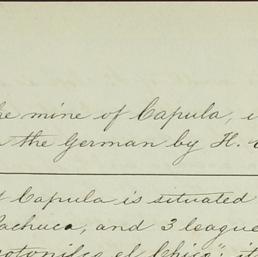 he mine of Capula, i
the German by H.
Capula is situated
achuca, and 3 league
otonilco el Chico"; it